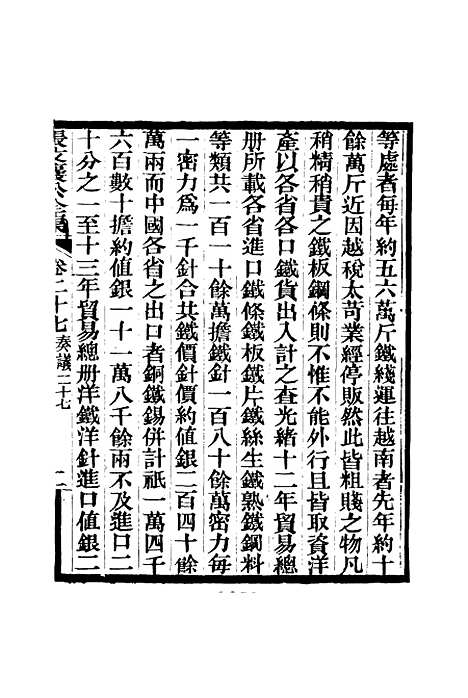 等處者每年約五六萬斤鐵綫運往越南者先年約十
餘萬斤近因越稅太苛業經停販然此皆粗賤之物凡
稍精稍貴之鐵板鋼條則不惟不能外行且皆取資洋
產以各省各口鐵貨出入計之查光緒十二年貿易總
册所載各省進口鐵條鐵板鐵片鐵絲生鐵熟鐵鋼料
等類共一百一十餘萬擔鐵針一百八十餘萬密力每
一密力為一千針合共鐵價針價約值銀二百四十餘
萬兩而中國各省之出口者銅鐵錫併計祇一萬四千
六百數十擔約值銀一十一萬八千餘兩不及進口二
十分之一至十三年貿易總册洋鐵洋針進口值銀二
卷二十七奏議二十七